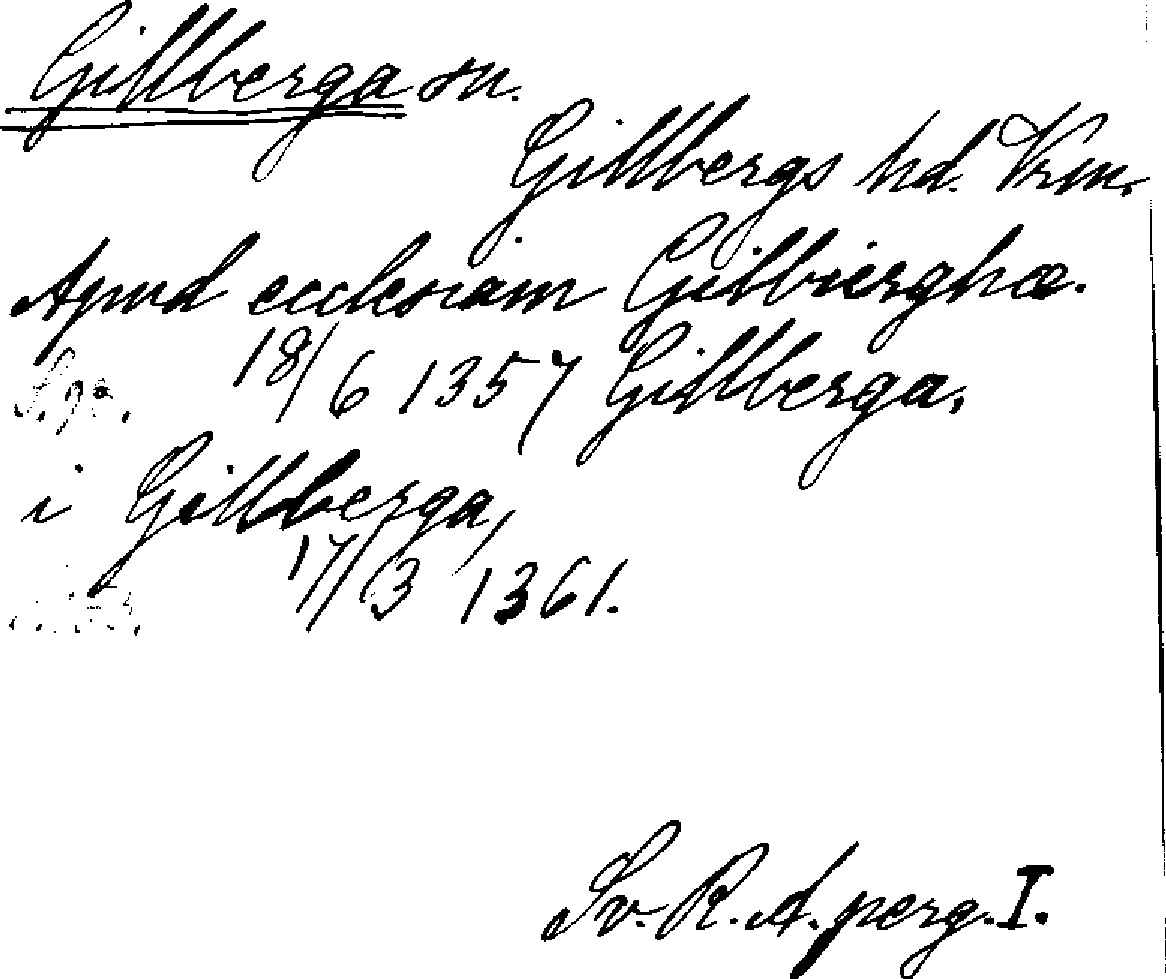 Gillberga sn.
Gillbergs hd. Vrm.
Apud ecclesiam Gilbierghæ.
18/6 1357 Gillberga.
i Gillberga,
17/3 1361.
Sv. R. A. perg. I.